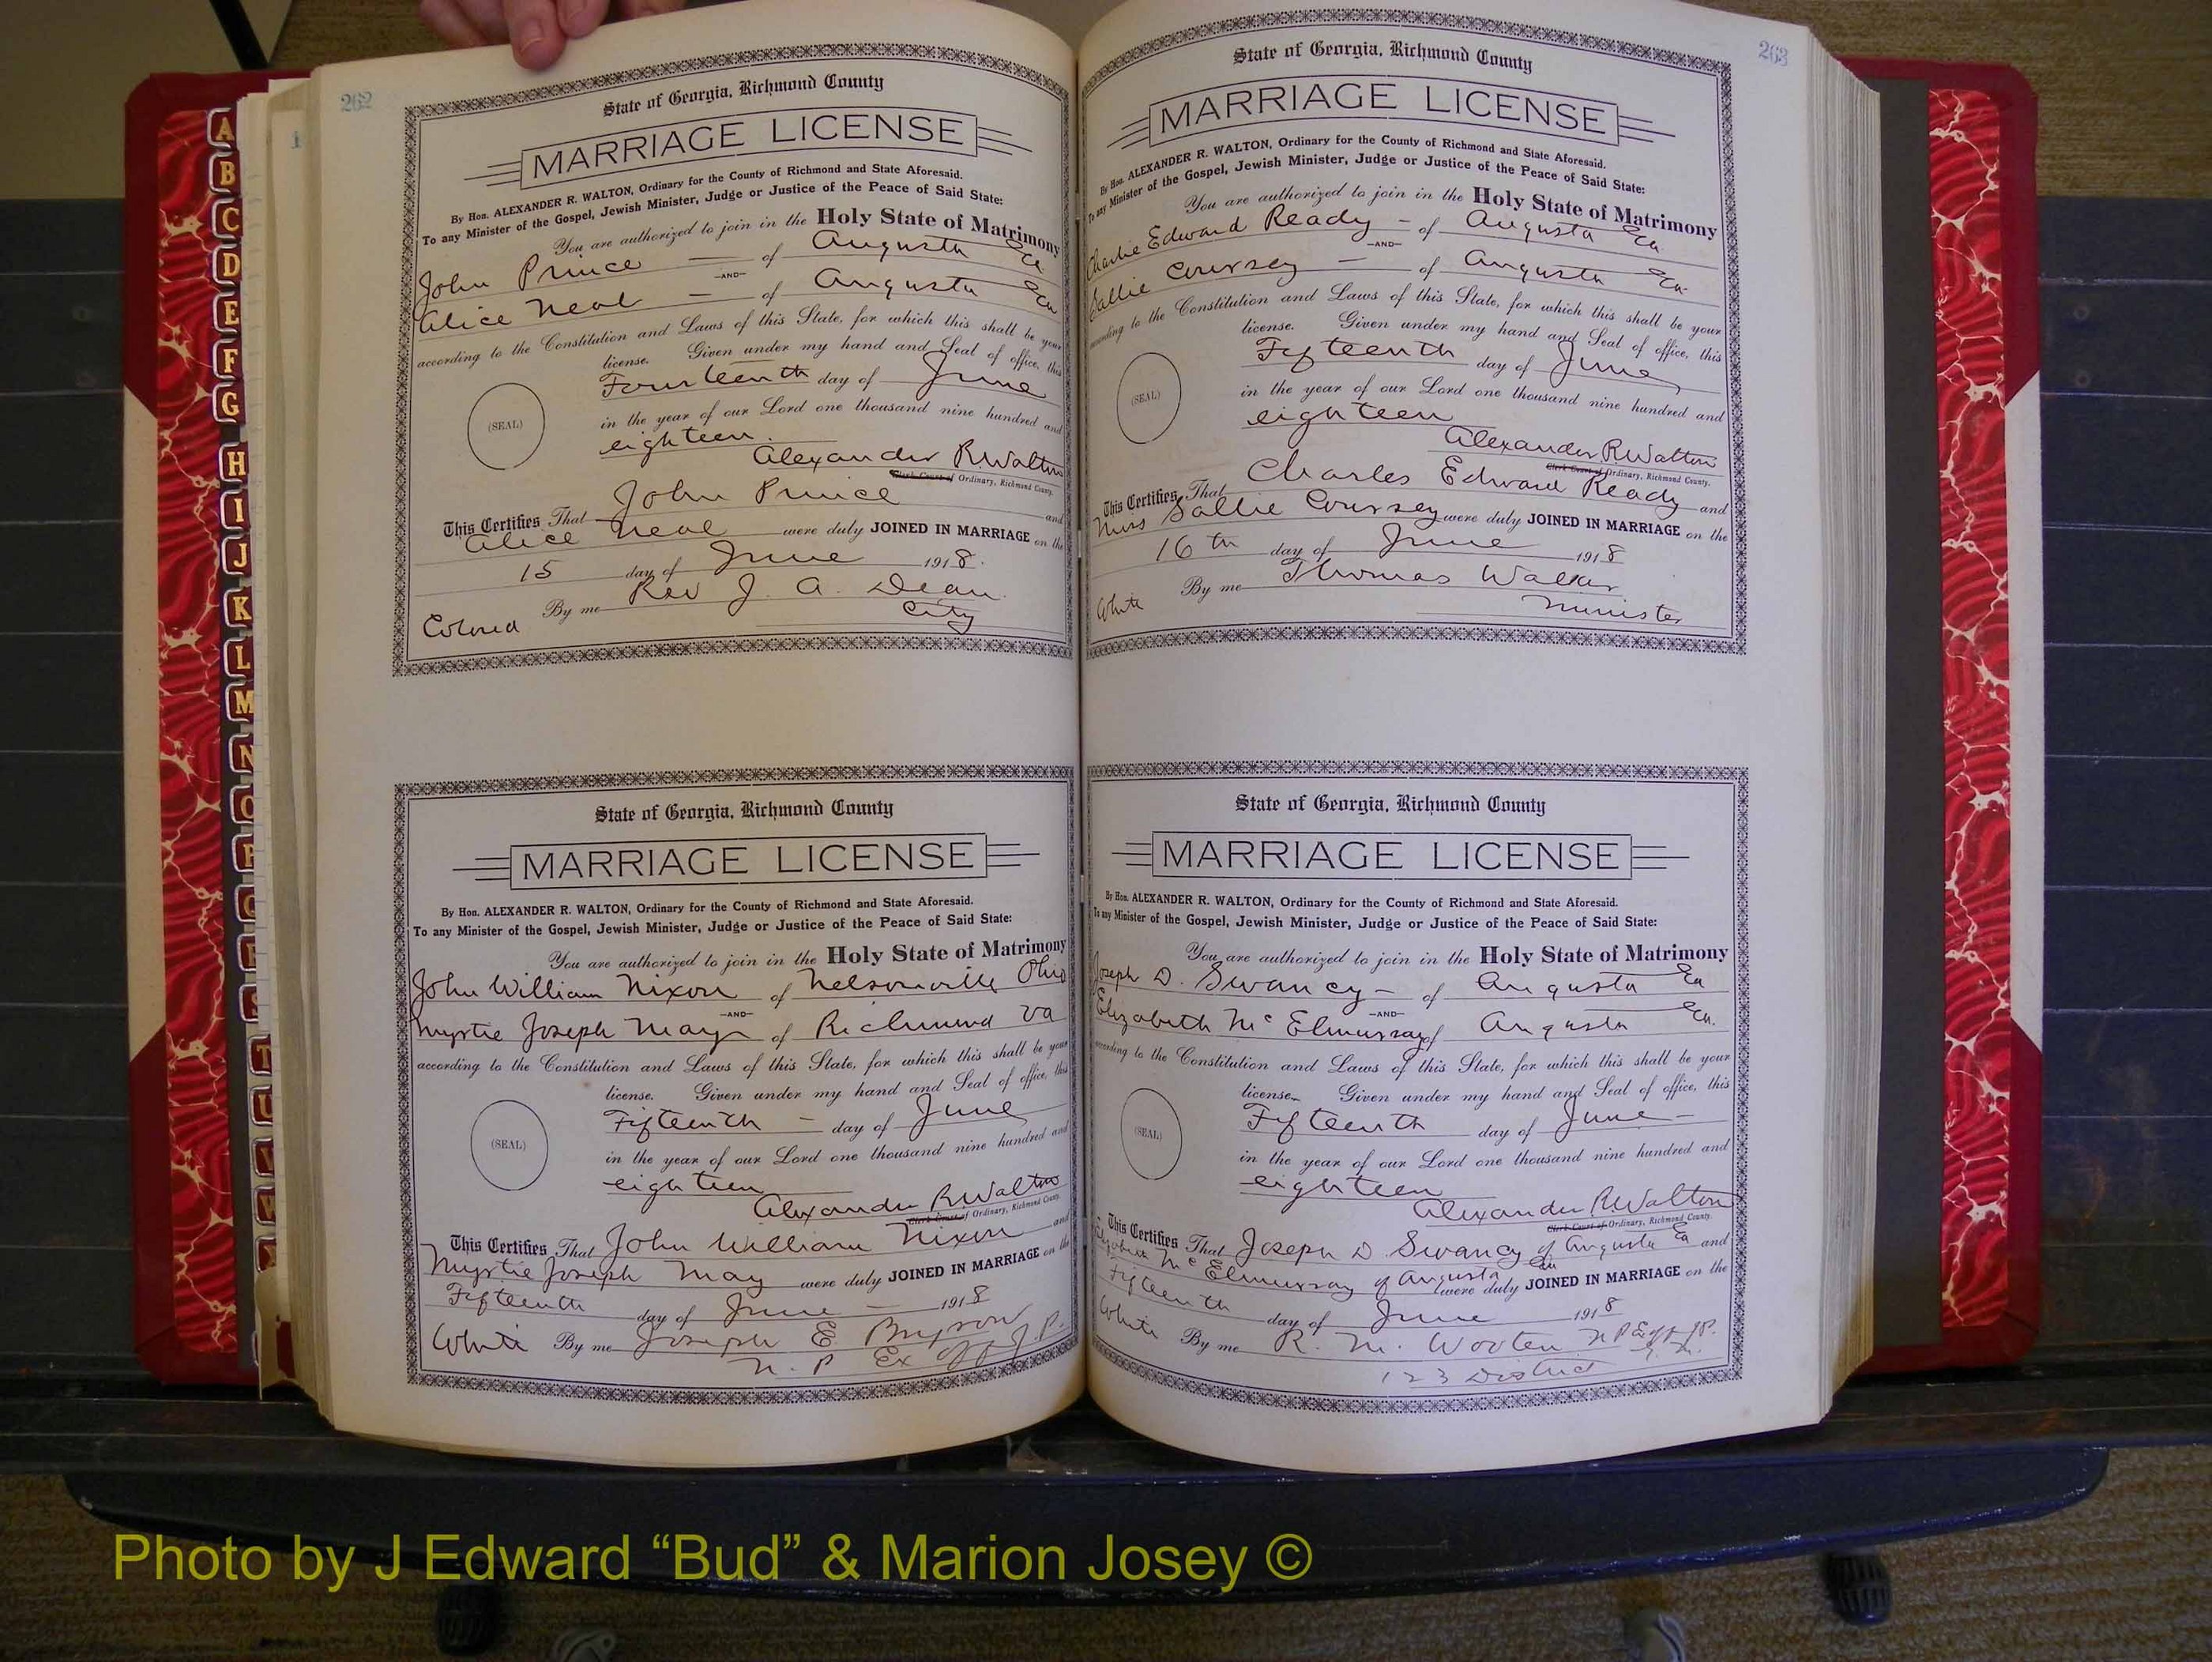 262
State of Georgia, Richmond County
MARRIAGE LICENSE
By Hon. ALEXANDER R. WALTON, Ordinary for the County of Richmond and State Aforesaid.
To any Minister of the Gospel, Jewish Minister, Judge or Justice of the Peace of Said State:
You are authorized to join in the Holy State of Matrimony
John Prince — of Augusta Ga
—AND—
Alice Neal — of Augusta Ga
according to the Constitution and Laws of this State, for which this shall be your
license. Given under my hand and Seal of office, this
Fourteenth day of June
(SEAL)
in the year of our Lord one thousand nine hundred and
eighteen.
Alexander R. Walton
Clerk Court of Ordinary, Richmond County.
This Certifies That John Prince and
Alice Neal were duly JOINED IN MARRIAGE on the
15 day of June 1918.
By me Rev J. A. Dean.
Colored City
State of Georgia, Richmond County
MARRIAGE LICENSE
By Hon. ALEXANDER R. WALTON, Ordinary for the County of Richmond and State Aforesaid.
To any Minister of the Gospel, Jewish Minister, Judge or Justice of the Peace of Said State:
You are authorized to join in the Holy State of Matrimony
John William Nixon of Nelsonville Ohio
—AND—
Myrtie Joseph May of Richmond Va
according to the Constitution and Laws of this State, for which this shall be your
license. Given under my hand and Seal of office, this
Fifteenth — day of June
(SEAL)
in the year of our Lord one thousand nine hundred and
eighteen
Alexander R. Walton
Clerk Court of Ordinary, Richmond County.
This Certifies That John William Nixon and
Myrtie Joseph May were duly JOINED IN MARRIAGE on the
Fifteenth day of June — 1918
White By me Joseph E Bryson
N. P Ex off J.P.
263
State of Georgia, Richmond County
MARRIAGE LICENSE
By Hon. ALEXANDER R. WALTON, Ordinary for the County of Richmond and State Aforesaid.
To any Minister of the Gospel, Jewish Minister, Judge or Justice of the Peace of Said State:
You are authorized to join in the Holy State of Matrimony
Charlie Edward Ready — of Augusta Ga
—AND—
Sallie Coursey — of Augusta Ga
according to the Constitution and Laws of this State, for which this shall be your
license. Given under my hand and Seal of office, this
Fifteenth day of June
(SEAL)
in the year of our Lord one thousand nine hundred and
eighteen
Alexander R. Walton
Clerk Court of Ordinary, Richmond County.
This Certifies That Charles Edward Ready and
Miss Sallie Coursey were duly JOINED IN MARRIAGE on the
16th day of June 1918
White By me Thomas Walker
Minister
State of Georgia, Richmond County
MARRIAGE LICENSE
By Hon. ALEXANDER R. WALTON, Ordinary for the County of Richmond and State Aforesaid.
To any Minister of the Gospel, Jewish Minister, Judge or Justice of the Peace of Said State:
You are authorized to join in the Holy State of Matrimony
Joseph D. Swancy — of Augusta Ga
—AND—
Elizabeth McElmurray of Augusta Ga.
according to the Constitution and Laws of this State, for which this shall be your
license. Given under my hand and Seal of office, this
Fifteenth day of June —
(SEAL)
in the year of our Lord one thousand nine hundred and
eighteen
Alexander R. Walton
Clerk Court of Ordinary, Richmond County.
This Certifies That Joseph D Swancy of Augusta Ga and
Elizabeth McElmurray of Augusta Ga were duly JOINED IN MARRIAGE on the
Fifteenth day of June 1918
White By me R. M. Wooten N P Ex off JP.
123 District
A
B
C
D
E
F
G
H
I
J
K
L
M
N
O
P
Q
R
S
T
U
V
W
Photo by J Edward “Bud” & Marion Josey ©